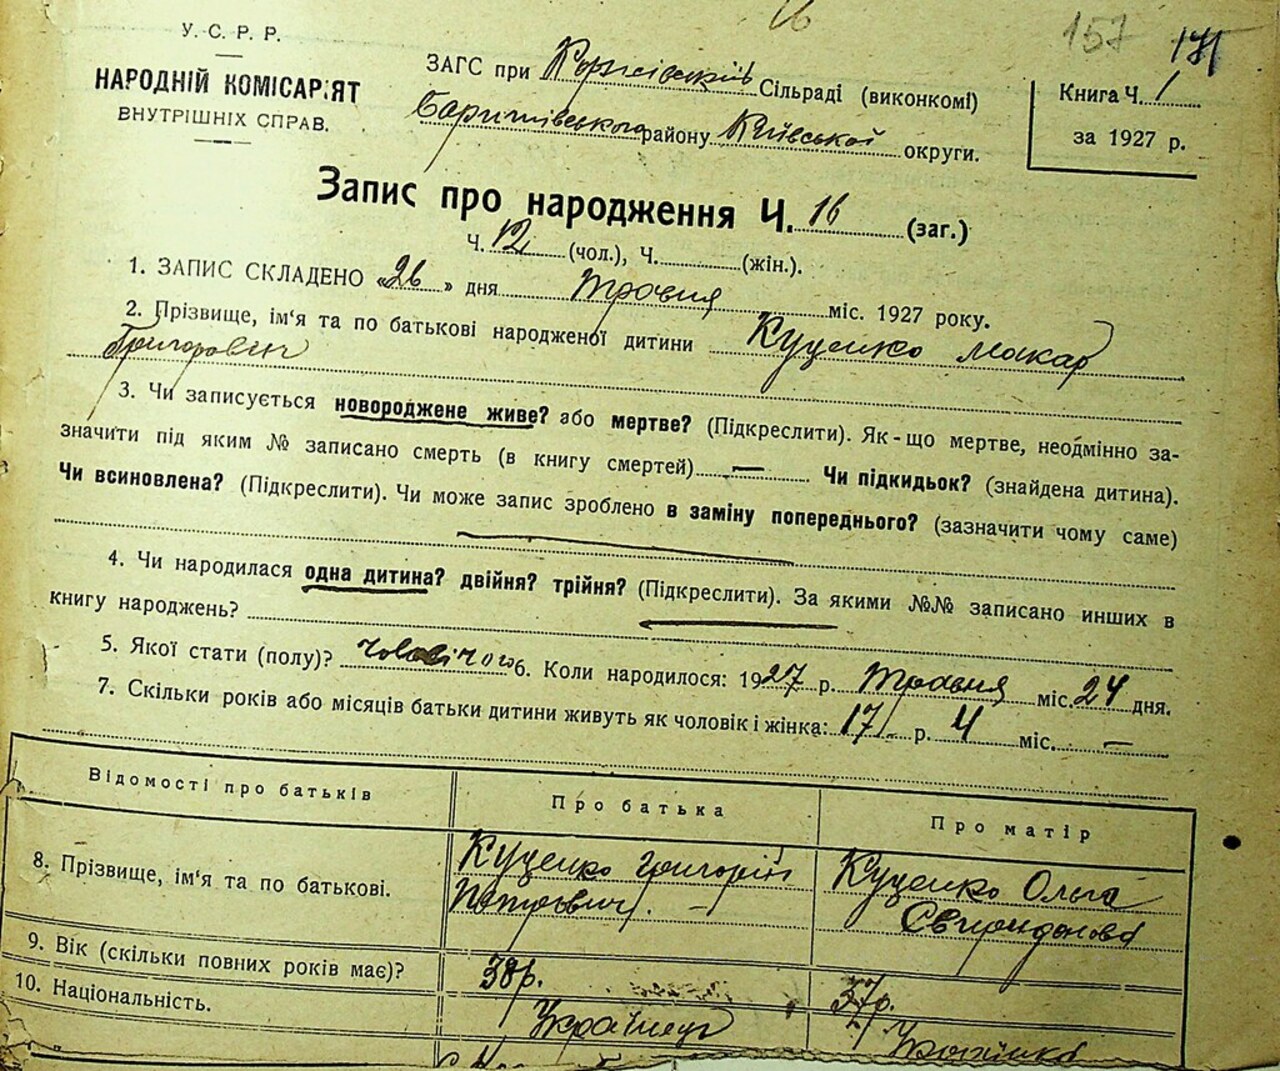 157 171
У. С. Р. Р.
НАРОДНІЙ КОМІСАР'ЯТ
ВНУТРІШНІХ СПРАВ.
ЗАГС при Коржівській Сільраді (виконкомі)
Баришівського району Київської округи.
Книга Ч. 1
за 1927 р.
Запис про народження Ч. 16 (заг.)
Ч. 12 (чол.), Ч. (жін.).
1. ЗАПИС СКЛАДЕНО «26» дня травня міс. 1927 року.
2. Прізвище, ім'я та по батькові народженої дитини Куценко Макар
Григорович
3. Чи записується новороджене живе? або мертве? (Підкреслити). Як-що мертве, неодмінно за-
значити під яким № записано смерть (в книгу смертей) — Чи підкидьок? (знайдена дитина).
Чи всиновлена? (Підкреслити). Чи може запис зроблено в заміну попереднього? (зазначити чому саме)
4. Чи народилася одна дитина? двійня? трійня? (Підкреслити). За якими №№ записано инших в
книгу народжень?
5. Якої стати (полу)? чоловічого 6. Коли народилося: 1927 р. травня міс. 24 дня.
7. Скільки років або місяців батьки дитини живуть як чоловік і жінка: 17 р. 4 міс. —
Відомості про батьків Про батька Про матір
8. Прізвище, ім'я та по батькові. Куценко Григорій Петрович. — Куценко Ольга Свиридонова
9. Вік (скільки повних років має)? 38 р. 37 р.
10. Національність. Українець Українка